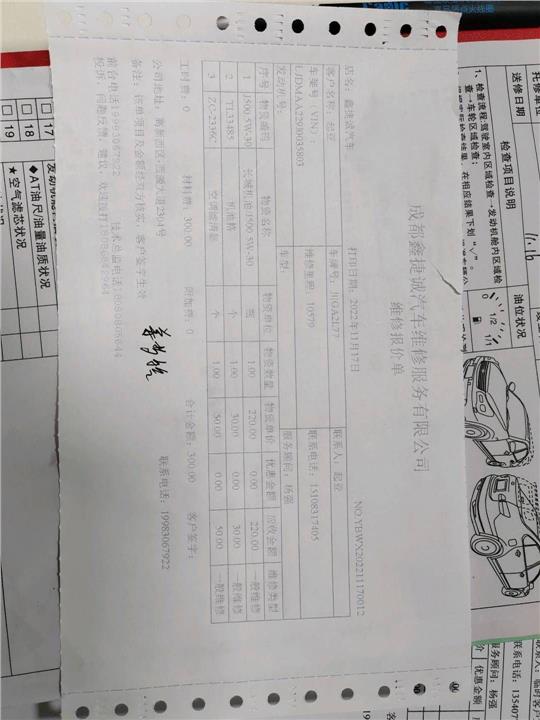 成都鑫捷诚汽车维修服务有限公司
维修报价单
NO.YBWX202211170012
店名：鑫捷诚汽车
打印日期：2022年11月17日
客户名称：起亚
车牌号：川GA2L77
联系人：起亚
车架号（VIN）：
LJDMAA229J0035803
维修里程：10579
联系电话：15108317405
发动机号：
车型：
服务顾问：杨强
序号 物资编码 物资名称 物资单位 物资数量 物资单价 优惠金额 应收金额 维修类型
1 J500 5W-30 长城机油J500 5W-30 瓶 1.00 220.00 0.00 220.00 一般维修
2 TL33485 机油格 个 1.00 30.00 0.00 30.00 一般维修
3 ZC-23360 空调滤清器 个 1.00 50.00 0.00 50.00 一般维修
工时费：0 材料费：300.00 附加费：0 合计金额：300.00 客户签字：
公司地址：高新西区西源大道2304号 联系电话：19983067922
备注：该单项目及金额经双方核实，客户签字生效
前台电话19983067922 技术总监电话18089806644
投诉、问题反馈、建议，欢迎拨打
托修单位
送修日期
11.16
检查项目说明
1、检查流程:驾驶室内区域检查→发动机舱内区域检
查→车轮区域检查;
在相应结果下划“√”。
油位状况
1/2
1/1
□ 17
□ 18
□ 19
◆AT油尺/油量油质状况
★空气滤芯状况
联系电话：13540
服务顾问：杨强
优惠金额